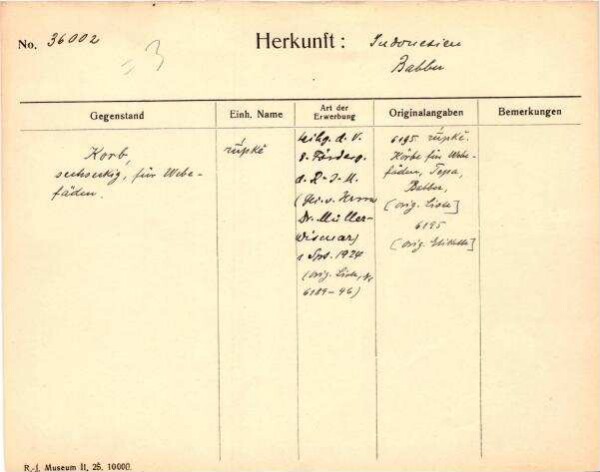 No. 36002
Herkunft: Indonesien
Babber
Gegenstand
Einh. Name
Art der Erwerbung
Originalangaben
Bemerkungen
Korb,
sechseckig, für Webe-
fäden.
rúpké
Leihg. d. V.
z. Förderg.
d. R-J-M.
(Gev. v. Herrn
Dr. Müller-
Wismar)
1924
(orig. Liste, №
6189-46)
6195 rúpké.
Körbe für Webe-
fäden, Tepa,
Babber,
(orig. Liste]
6195
(orig. Etikette]
R.-J. Museum II. 25. 10000.